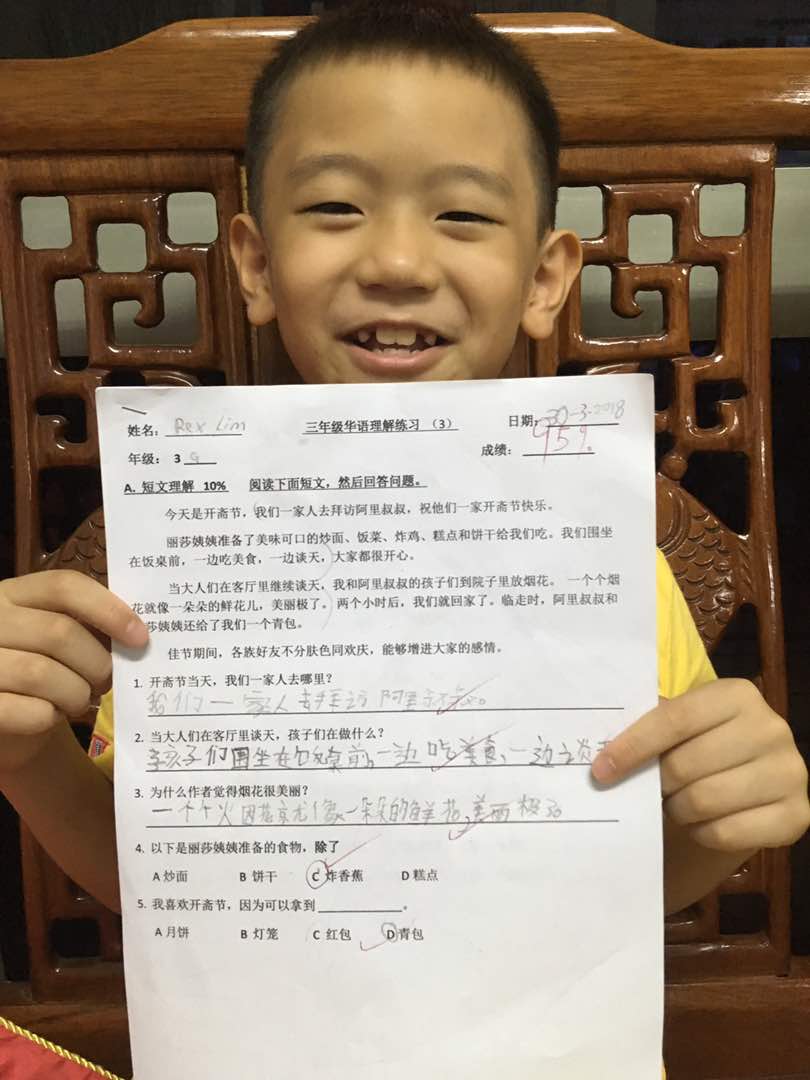 三年级华语理解练习 （3）
姓名： Rex Lim
日期： 30-3-2018
年级： 3 G
成绩： 95%
A. 短文理解 10% 阅读下面短文，然后回答问题。
今天是开斋节，我们一家人去拜访阿里叔叔，祝他们一家开斋节快乐。
丽莎姨姨准备了美味可口的炒面、饭菜、炸鸡、糕点和饼干给我们吃。我们围坐
在饭桌前，一边吃美食，一边谈天，大家都很开心。
当大人们在客厅里继续谈天，我和阿里叔叔的孩子们到院子里放烟花。 一个个烟
花就像一朵朵的鲜花儿，美丽极了。 两个小时后，我们就回家了。临走时，阿里叔叔和
莎姨姨还给了我们一个青包。
佳节期间，各族好友不分肤色同欢庆，能够增进大家的感情。
1. 开斋节当天，我们一家人去哪里？
我们一家人去拜访阿里叔叔。
2. 当大人们在客厅里谈天，孩子们在做什么？
孩子们围坐在饭桌前，一边吃美食，一边
3. 为什么作者觉得烟花很美丽？
一个个烟花就像一朵朵的鲜花，美丽极了
4. 以下是丽莎姨姨准备的食物，除了
A 炒面 B 饼干 C 炸香蕉 D 糕点
5. 我喜欢开斋节，因为可以拿到 ____________ 。
A 月饼 B 灯笼 C 红包 D 青包